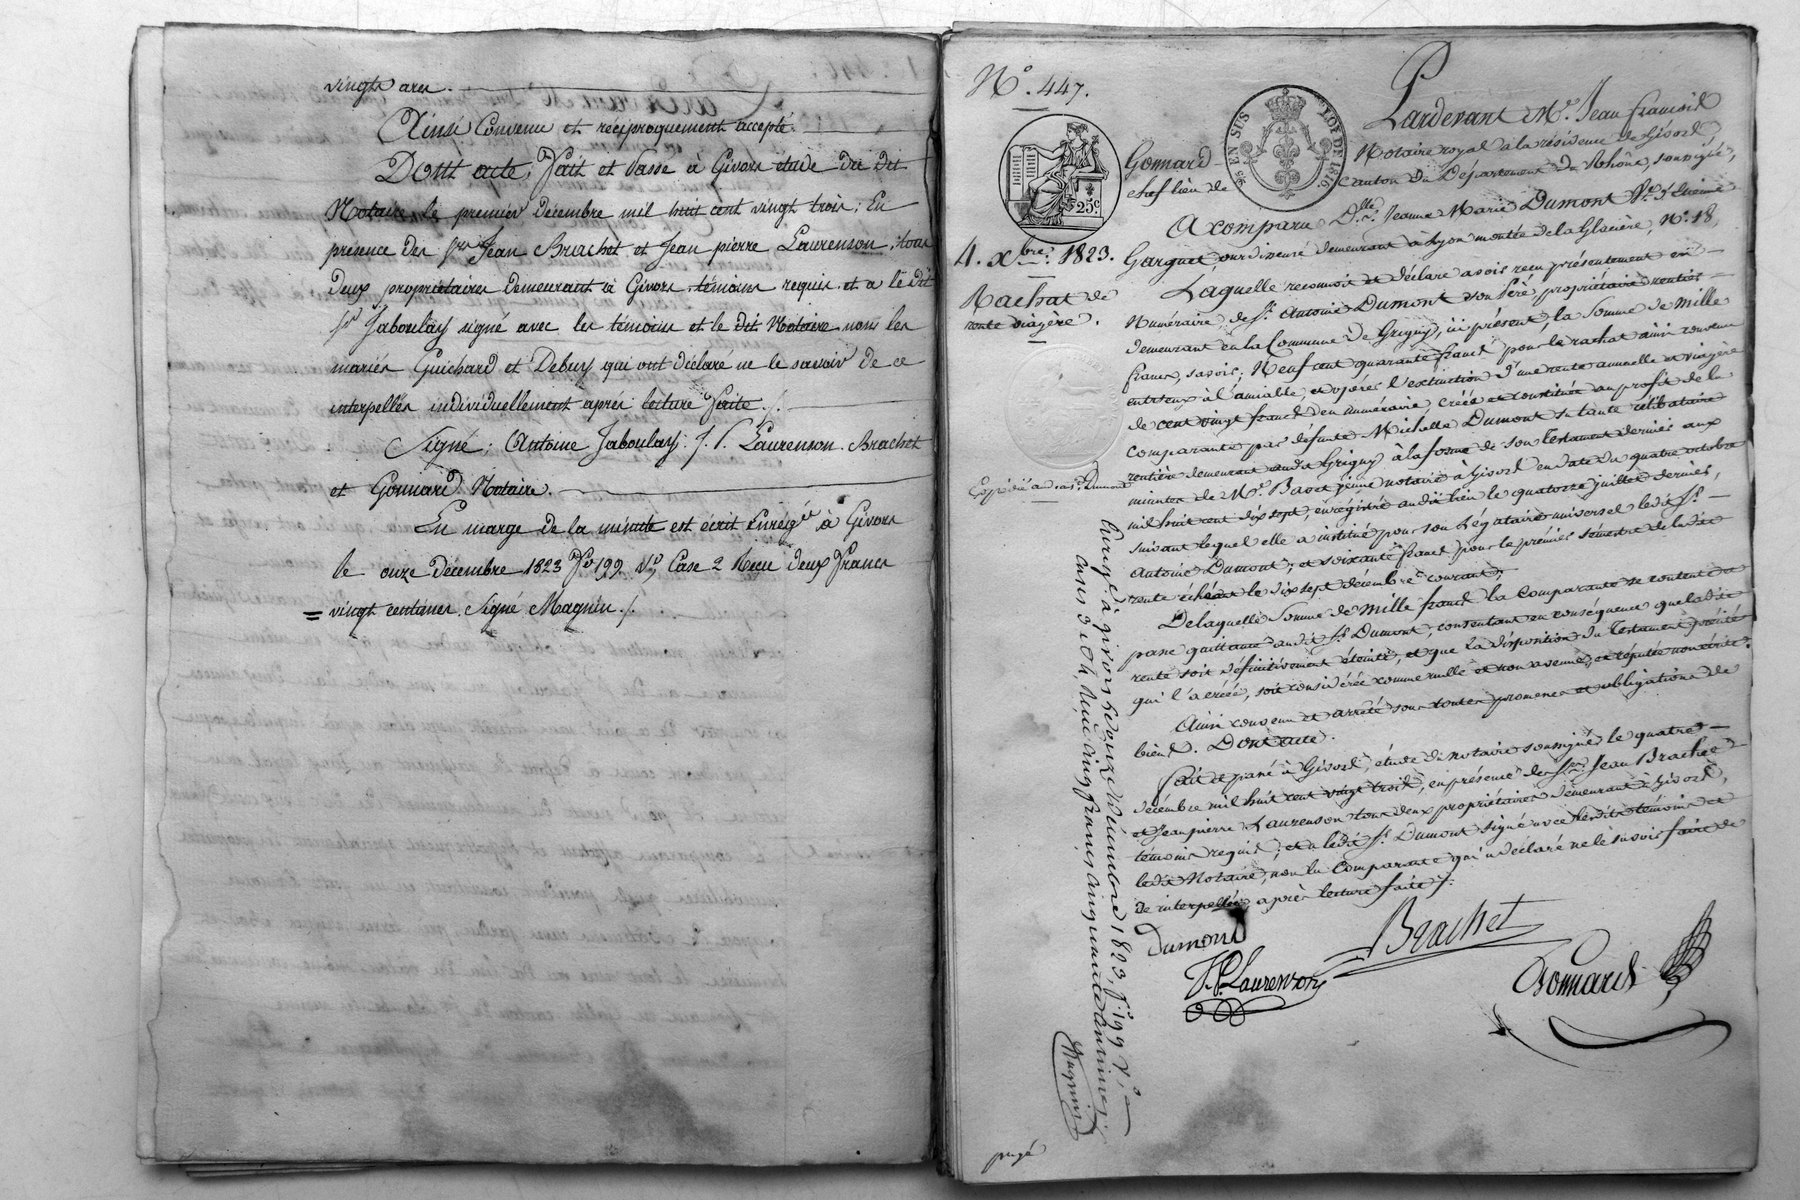 vingts ares.
Ainsi Convenu et réciproquement accepté.
Dont acte, Fait et Passé à Givors étude du dit
Notaire le premier Décembre mil huit cent vingt trois; En
présence des Srs Jean Brachet et Jean pierre Laurenson, tous
deux propriétaires demeurant à Givors, témoins requis et a le dit
Sr Jaboulay signé avec les témoins et le dit Notaire non les
mariés Guichard et Debuy qui ont déclaré ne le savoir de ce
interpellés individuellement après lecture faite ./.
Signé: Antoine Jaboulay: J. P. Laurenson. Brachet
et Gonnard Notaire.
En marge de la minute est écrit Enregité à Givors
le onze Décembre 1823 Fo 199 Vo Case 2 Reçu deux Francs
= vingt centimes. Signé Magnin ./.
No. 447.
25c
95 EN SUS
LOI DE 1816.
4. Xbre. 1823.
Rachat de
rente viagère.
Expédié au Sr. Dumont
Pardevant Me. Jean François
Gonnard Notaire royal à la résidence de Givors,
chef lieu de canton du Département du Rhône, soussigné,
A comparu Dlle. Jeanne Marie Dumont Ve. d'Etienne
Garguet, ourdisseuse demeurant à Lyon montée de la Glacière, No. 18,
Laquelle reconnoit et déclare avoir reçu présentement en
Numéraire, de Sr. Antoine Dumont son frère, propriétaire rentier
demeurant en la Commune de Grigny, ici présent, la Somme de Mille
francs, savoir; Neuf cent quarante francs pour le rachat ainsi convenu
entr'eux à l'amiable, et opérer l'extinction d'une rente annuelle et viagère
de cent vingt francs en numéraire, créée et constituée au profit de la
comparante par défunte Michelle Dumont sa tante célibataire
rentière demeurant audit Grigny à la forme de son Testament dernier aux
minutes de Me. Bavet jeune notaire à Givors en date du quatre octobre
mil huit cent dix sept, enregistré audit lieu le quatorze juillet dernier,
suivant lequel elle a institué pour son Légataire universel ledit Sr.
Antoine Dumont; et soixante francs pour le premier semestre de ladite
rente échéant le dix sept décembre courant;
De laquelle Somme de Mille francs la Comparante se contente et
passe quittance audit Sr. Dumont, consentant en conséquence que ladite
rente soit définitivement éteinte, et que la disposition du Testament précité
qui l'a créée, soit considérée comme nulle et non avenue, et réputée non écrite.
Ainsi convenu et arrêté sous toutes promesses et obligations de
biens. Dont acte.
Fait et passé à Givors, étude du notaire soussigné le quatre
décembre mil huit cent vingt trois, en présence des Srs. Jean Brachet
et Jean pierre Laurenson tous deux propriétaires demeurant à Givors,
témoins requis; et a ledit Sr. Dumont signé avec lesdits témoins et
ledit Notaire, non la Comparante qui a déclaré ne le savoir faire de
ce interpellée, après lecture faite ./.
Dumont
J. P. Laurenson
Brachet
Gonnard
Enregé. à givors le onze Décembre 1823, fo. 199 Vo.
Cases 3 et 4, Reçu cinq francs cinquante centimes
Magnin